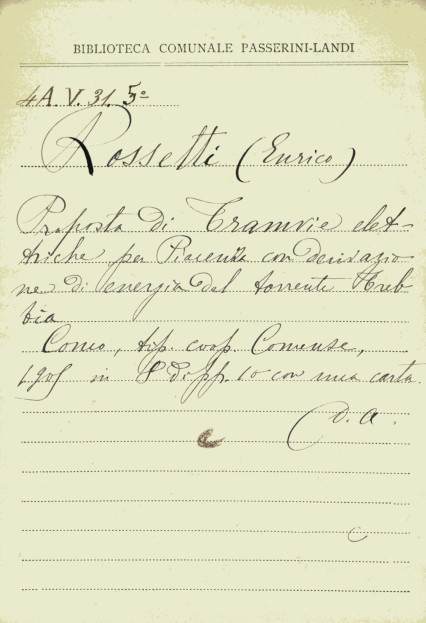 BIBLIOTECA COMUNALE PASSERINI-LANDI
4A.V.31.5º
Rossetti (Enrico)
Proposta di Tramvie elet-
triche per Piacenza con derivazio-
ne di energia dal torrente Treb-
bia
Como, tip. coop. Comense,
1905 in 8 di pp. 10 con una carta.
D. A.